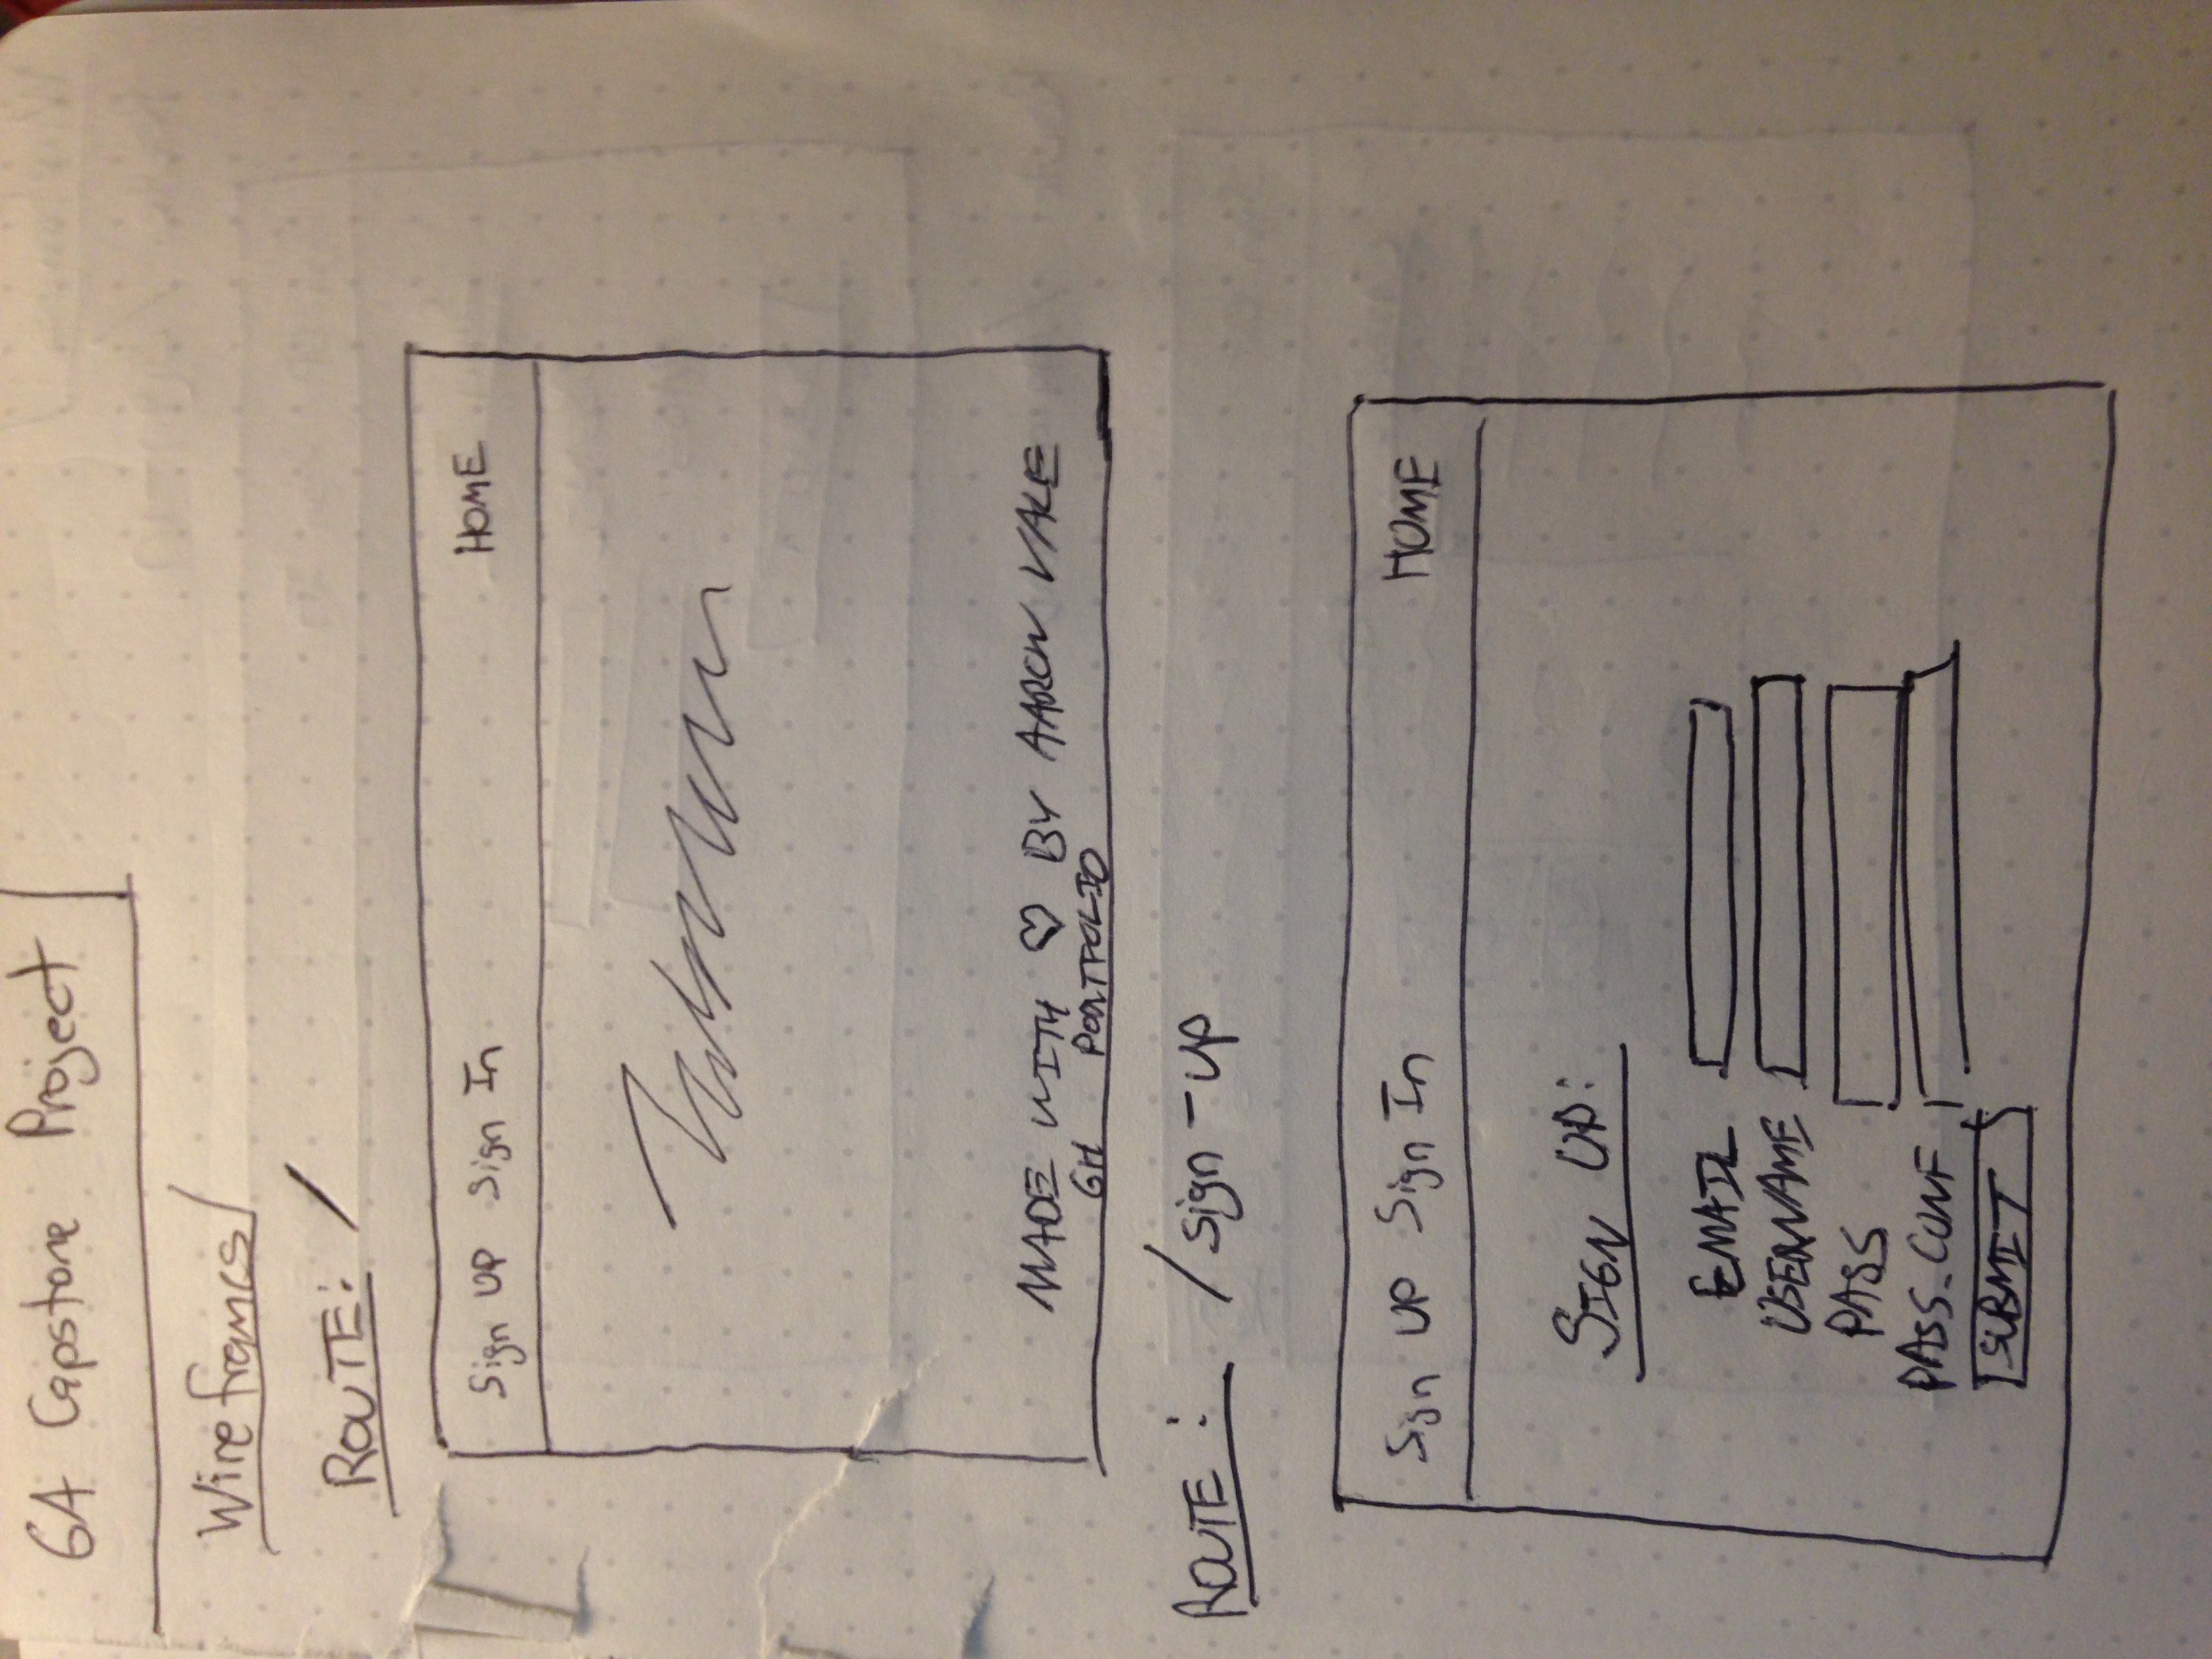 GA Capstone Project
Wireframes
ROUTE: /
Sign UP Sign In HOME
MADE WITH ♡ BY AARON VALE
GH PORTFOLIO
ROUTE: /sign-up
Sign UP Sign In HOME
SIGN UP:
EMAIL
USERNAME
PASS
PASS_CONF
SUBMIT